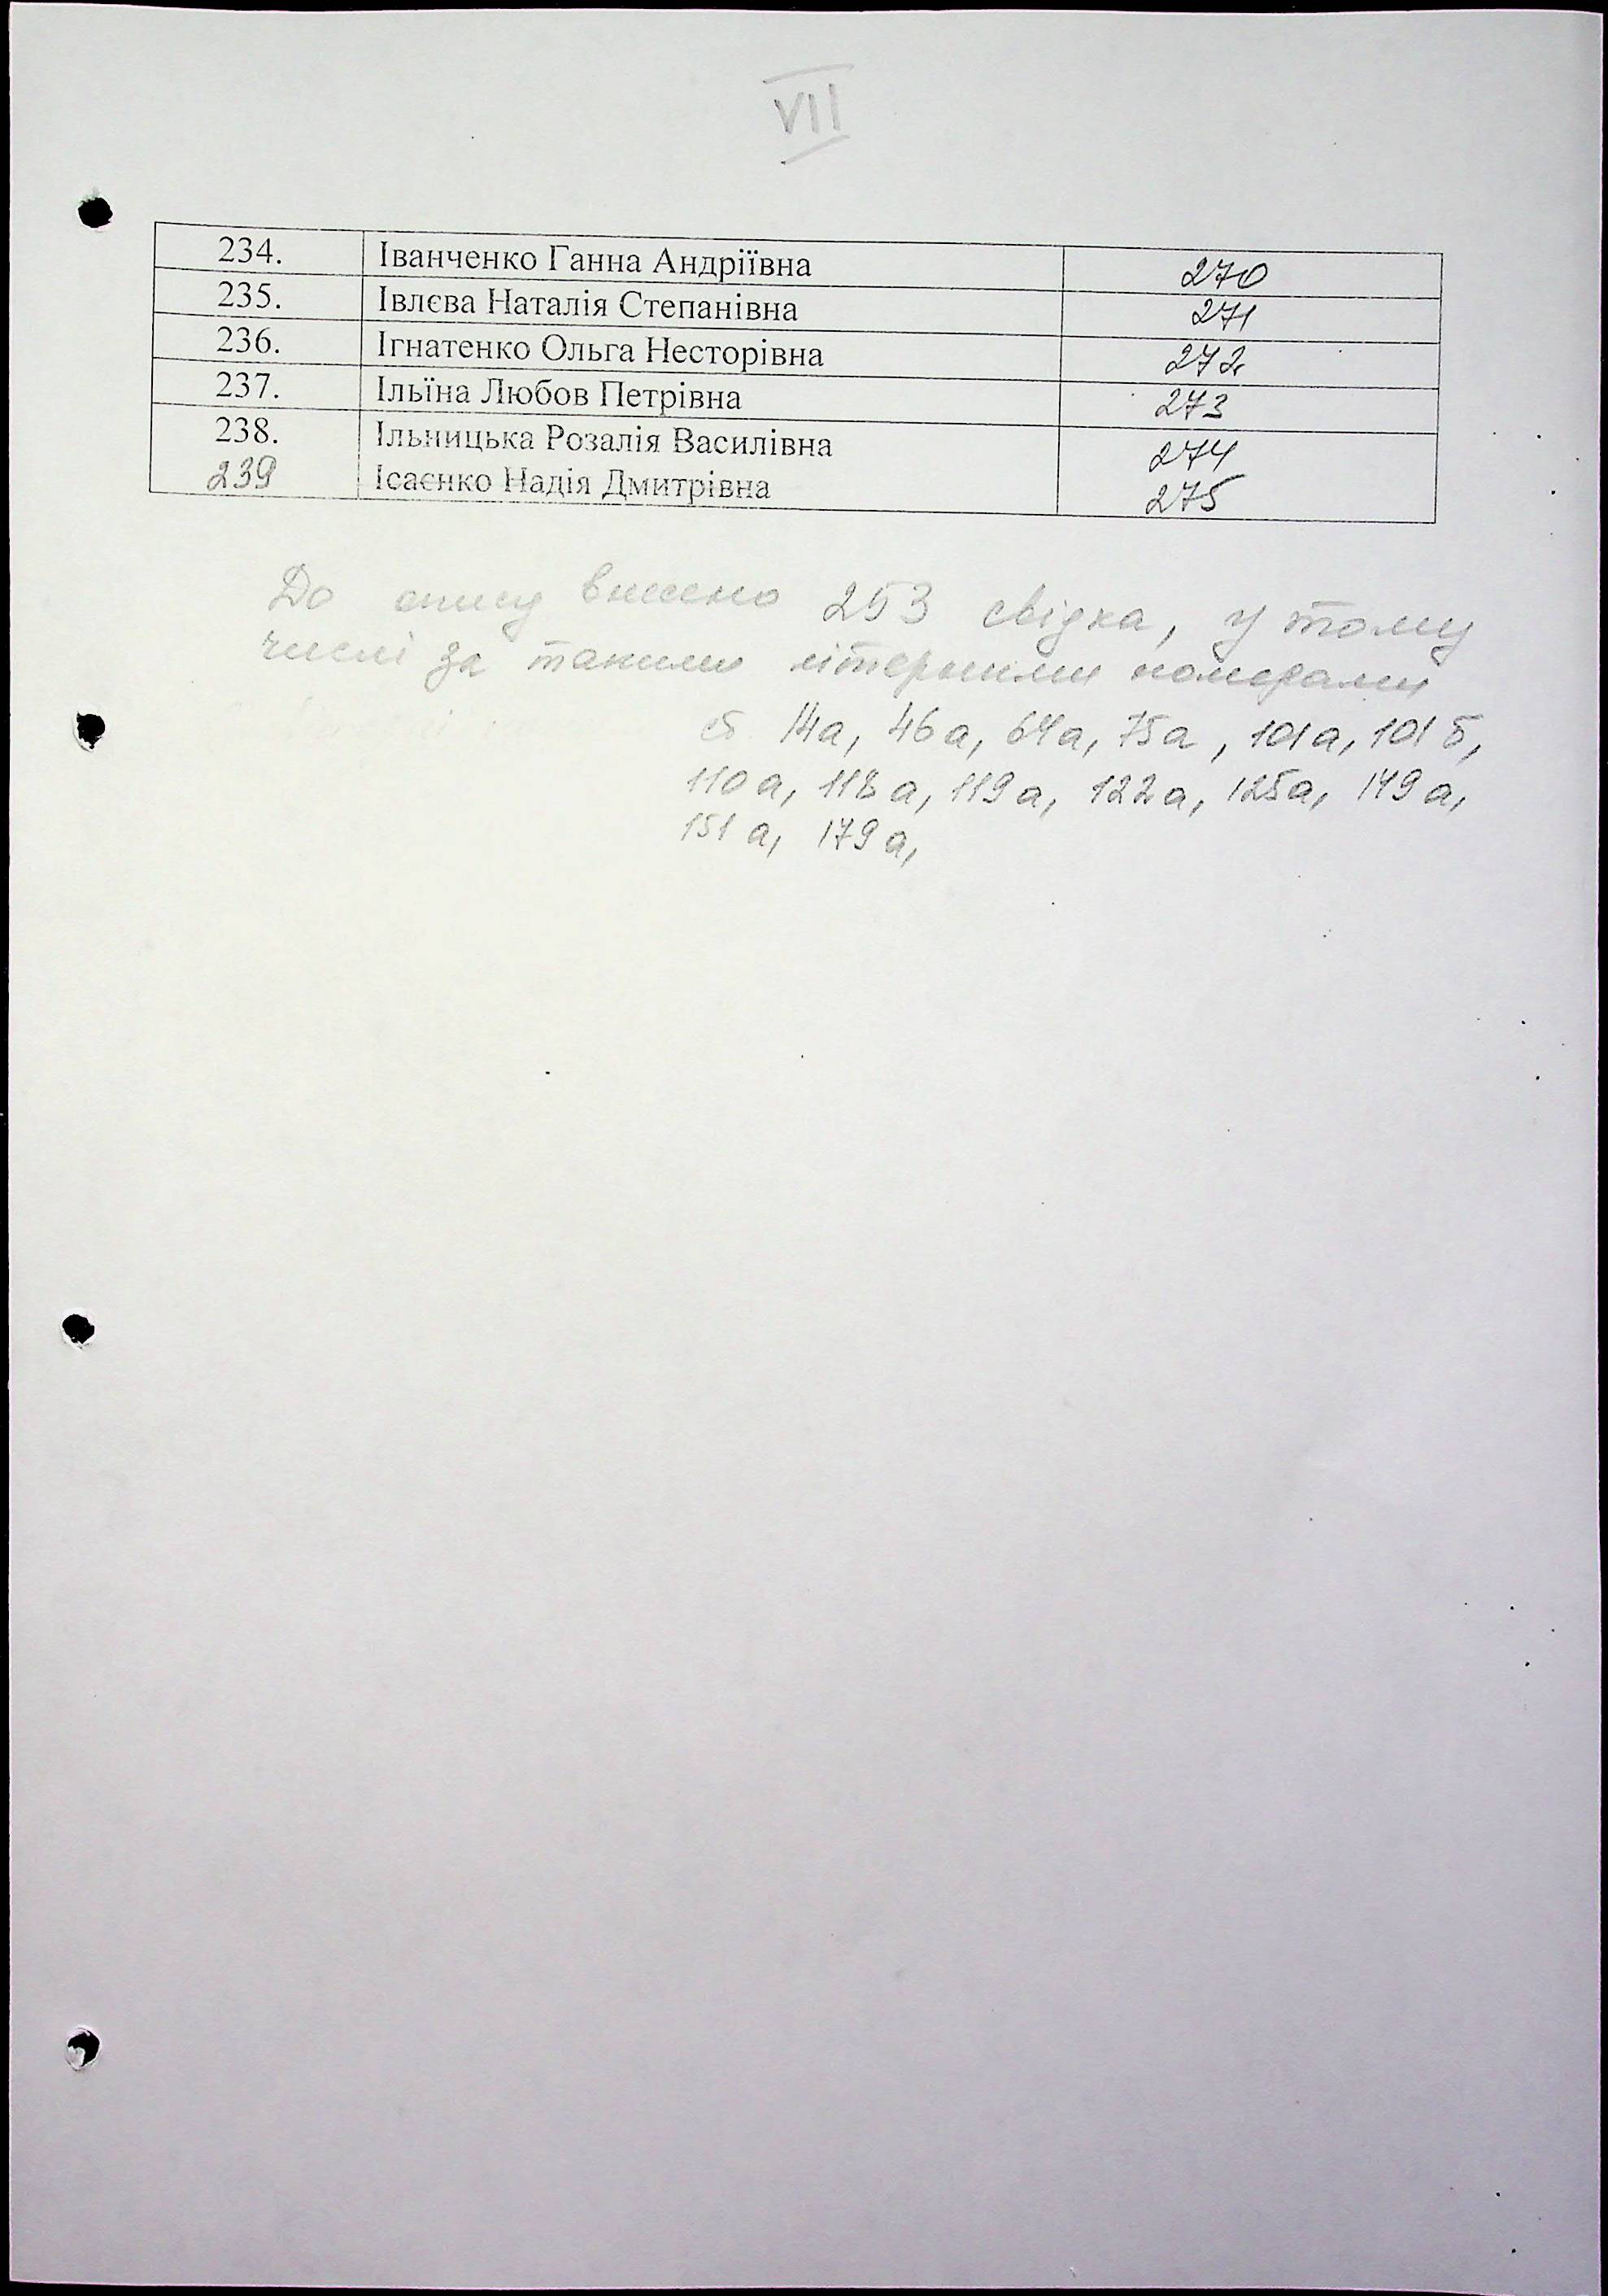 VII
234. Іванченко Ганна Андріївна 270
235. Івлєва Наталія Степанівна 271
236. Ігнатенко Ольга Несторівна 272
237. Ільїна Любов Петрівна 273
238. Ільницька Розалія Василівна 274
239 Ісаєнко Надія Дмитрівна 275
До опису внесено 253 свідка, у тому
числі за такими літерними номерами
14а, 46а, 64а, 75а, 101а, 101б,
110а, 118а, 119а, 122а, 125а, 149а,
151а, 179а,